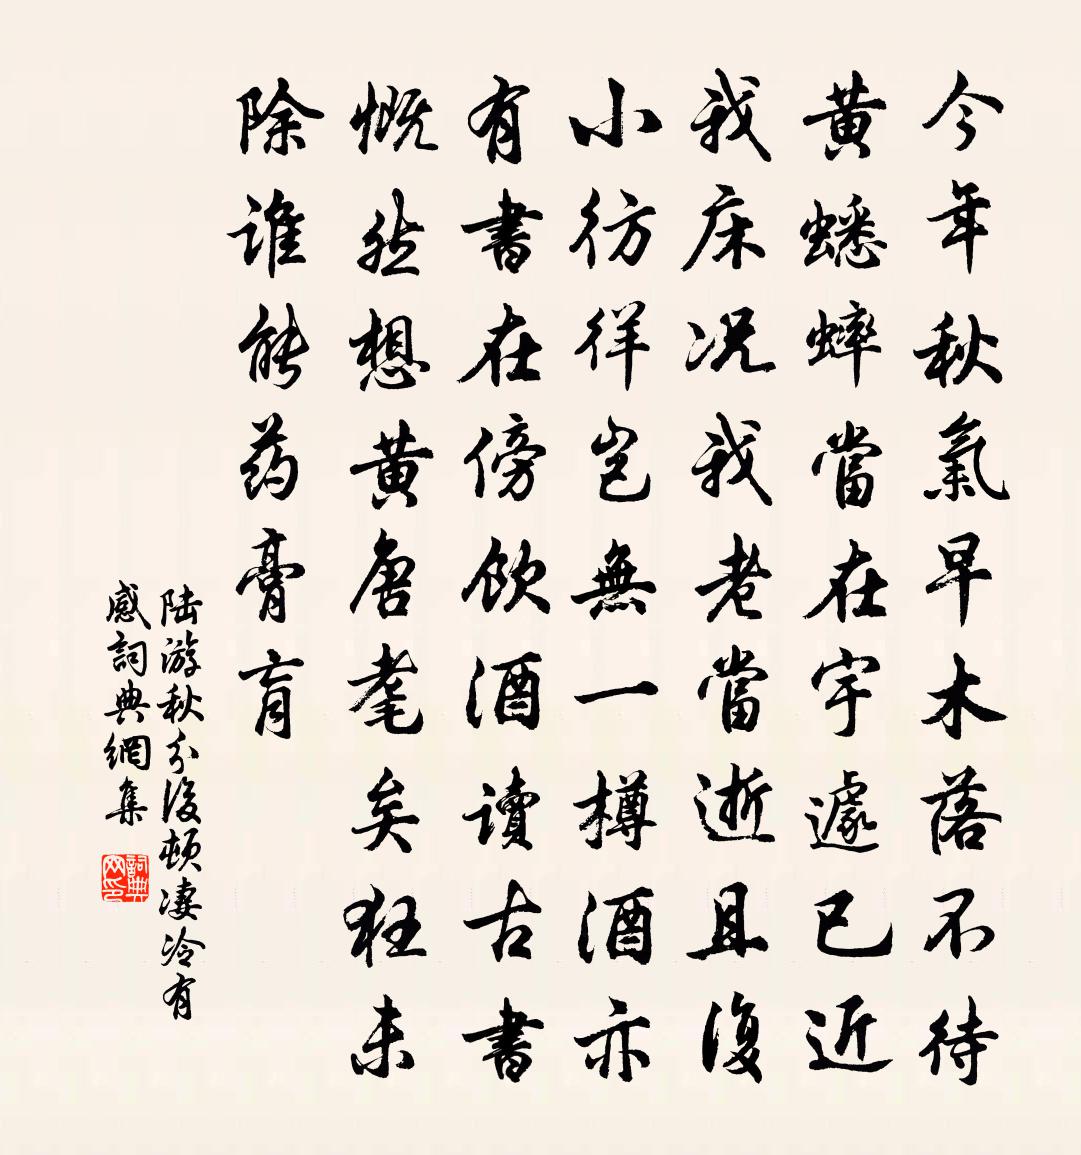 今年秋氣早木落不待
黃蟋蟀當在宇遽已近
我床况我老當逝且復
小彷徉豈無一樽酒亦
有書在傍飲酒讀古書
慨然想黃唐耄矣狂未
除誰能药膏肓
陸游秋分後頓凄冷有
感詞典網集
詞典
网印